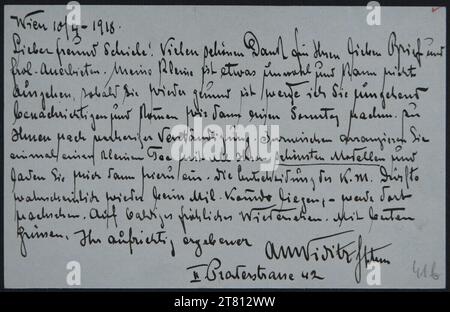 Wien 10/4 - 1918.
Lieber Freund Schiele! Vielen schönen Dank für Ihren lieben Brief und
frdl. Anerbieten. Meine Kleine ist etwas unwohl und kann nicht
ausgehen, sobald Sie wieder gesund ist werde ich Sie umgehend
benachrichtigen und kommen wir dann einen Sonntag nachm. zu
Ihnen nach vorheriger Verständigung. Inzwischen arrangieren Sie
einmal einen kleinen Tee mit Ihren schönsten Modellen und
laden Sie mich dann hierzu ein. Die Entscheidung des K.M. dürfte
wahrscheinlich wieder beim Mil. Kmdo liegen, - werde dort
nachsehen. Auf baldiges fröhliches Wiedersehen. Mit besten
Grüssen. Ihr aufrichtig ergebener
II Praterstrasse 42
416
alamy
Image ID: 2T812WW
www.alamy.com